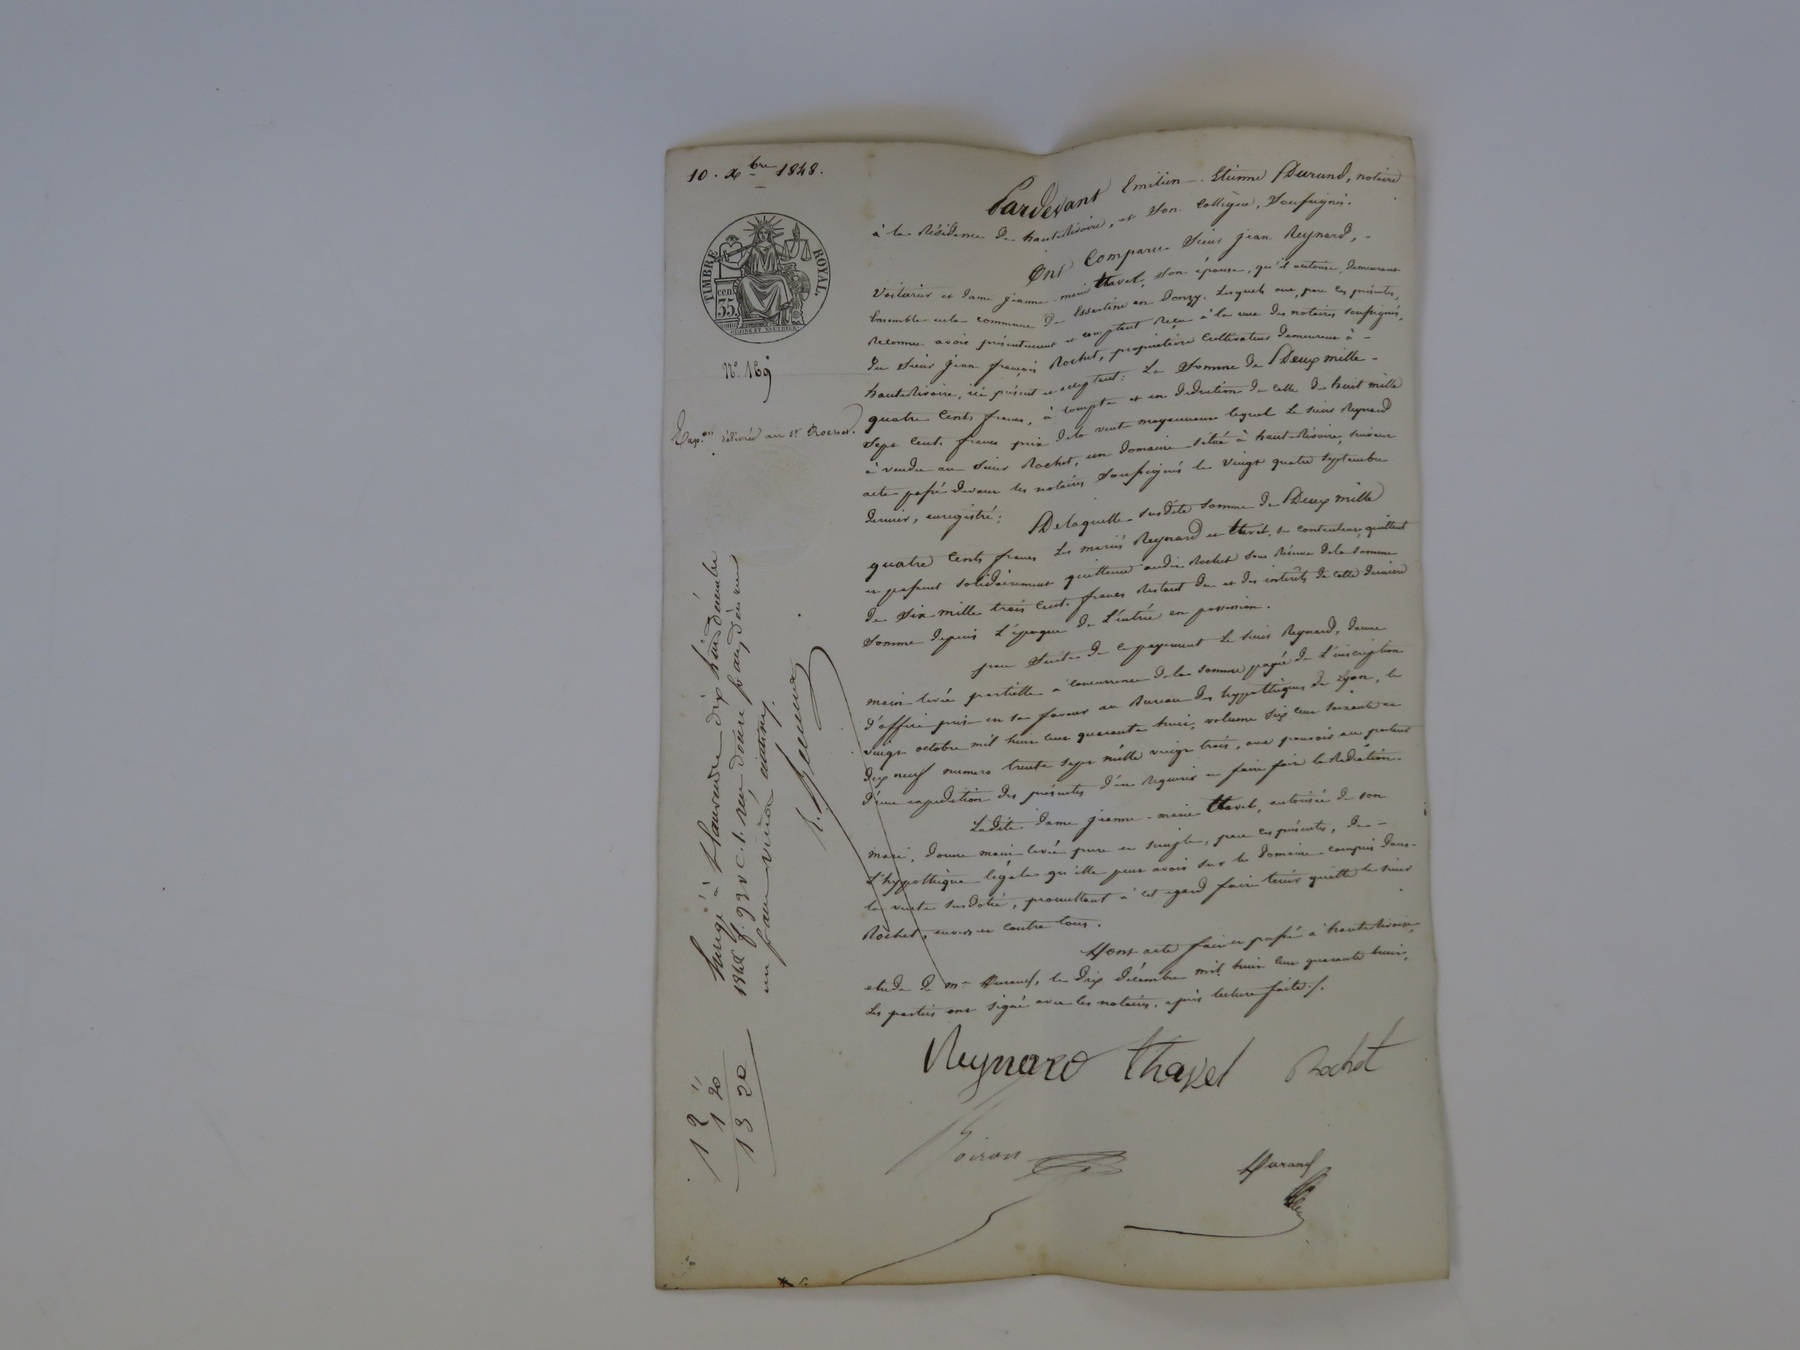 10. Xbre 1848.
TIMBRE ROYAL.
cen. 35.
N° 169
Exp.on délivrée au Sr Rochet.
Pardevant Emilien-Etienne Durand, notaire
à la Résidence de haute Rivoire, et son Collègue, Soussignés.
Ont Comparu Sieur jean Reynard,
Voiturier et dame jeanne-marie thavel, son épouse, qu'il autorise, demeurant
Ensemble en la commune de Essertine en Donzy. Lesquels ont, par ces présentes,
Reconnu avoir présentement et comptant Reçu à la vue des notaires soussignés,
du Sieur jean françois Rochet, propriétaire Cultivateur demeurant à
haute Rivoire, ici présent et acceptant : La Somme de Deux mille
quatre Cents francs, à Compte et en déduction de celle de huit mille
Sept Cents francs prix de la vente moyennant lequel le sieur Reynard
à vendu au Sieur Rochet, un domaine situé à haute-Rivoire, suivant
acte passé devant les notaires Soussignés le vingt quatre Septembre
dernier, enregistré ;
De laquelle susdite somme de Deux mille
quatre Cents francs Les mariés Reynard et thavel, se contentent, quittent
et passent solidairement quittance audit Rochet sous Réserve de la somme
de Six mille trois Cents francs Restant due et des intérêts de cette dernière
Somme depuis L'époque de L'entrée en possession.
par Suite de ce payement Le sieur Reynard, donne
main levée partielle à concurrence de la somme payée de L'inscription
d'office prise en sa faveur au Bureau des hypothèques de Lyon, le
vingt octobre mil huit cent quarante huit, volume six cent soixante et
dix neuf numero trente sept mille vingt trois, avec pouvoir au porteur
d'une expédition des présentes d'en Requérir et faire faire la Radiation.
Ladite dame jeanne-marie thavel, autorisée de son
mari, donne main-levée pure et simple, par ces présentes, de
L'hypothèque légale qu'elle peut avoir sur le domaine compris dans
la vente susdatée, promettant à cet égard faire tenir quitte le sieur
Rochet, envers et contre tous.
Dont acte fait et passé à haute rivoire,
étude de Me Durand, le dix décembre mil huit cent quarante huit,
Les parties ont signé avec les notaires, après lecture faite ./.
Reynard thavel Rochet
Durand
1848 f. 93 v. c. 1. reçu douze francs décime
12 "
1 20
13 20